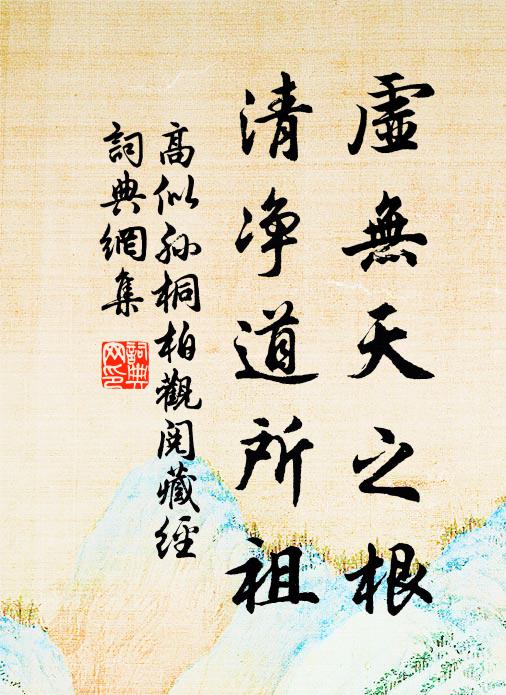 虛無天之根
清净道所祖
高似孙桐柏觀閱藏經
詞典網集
詞典
网印